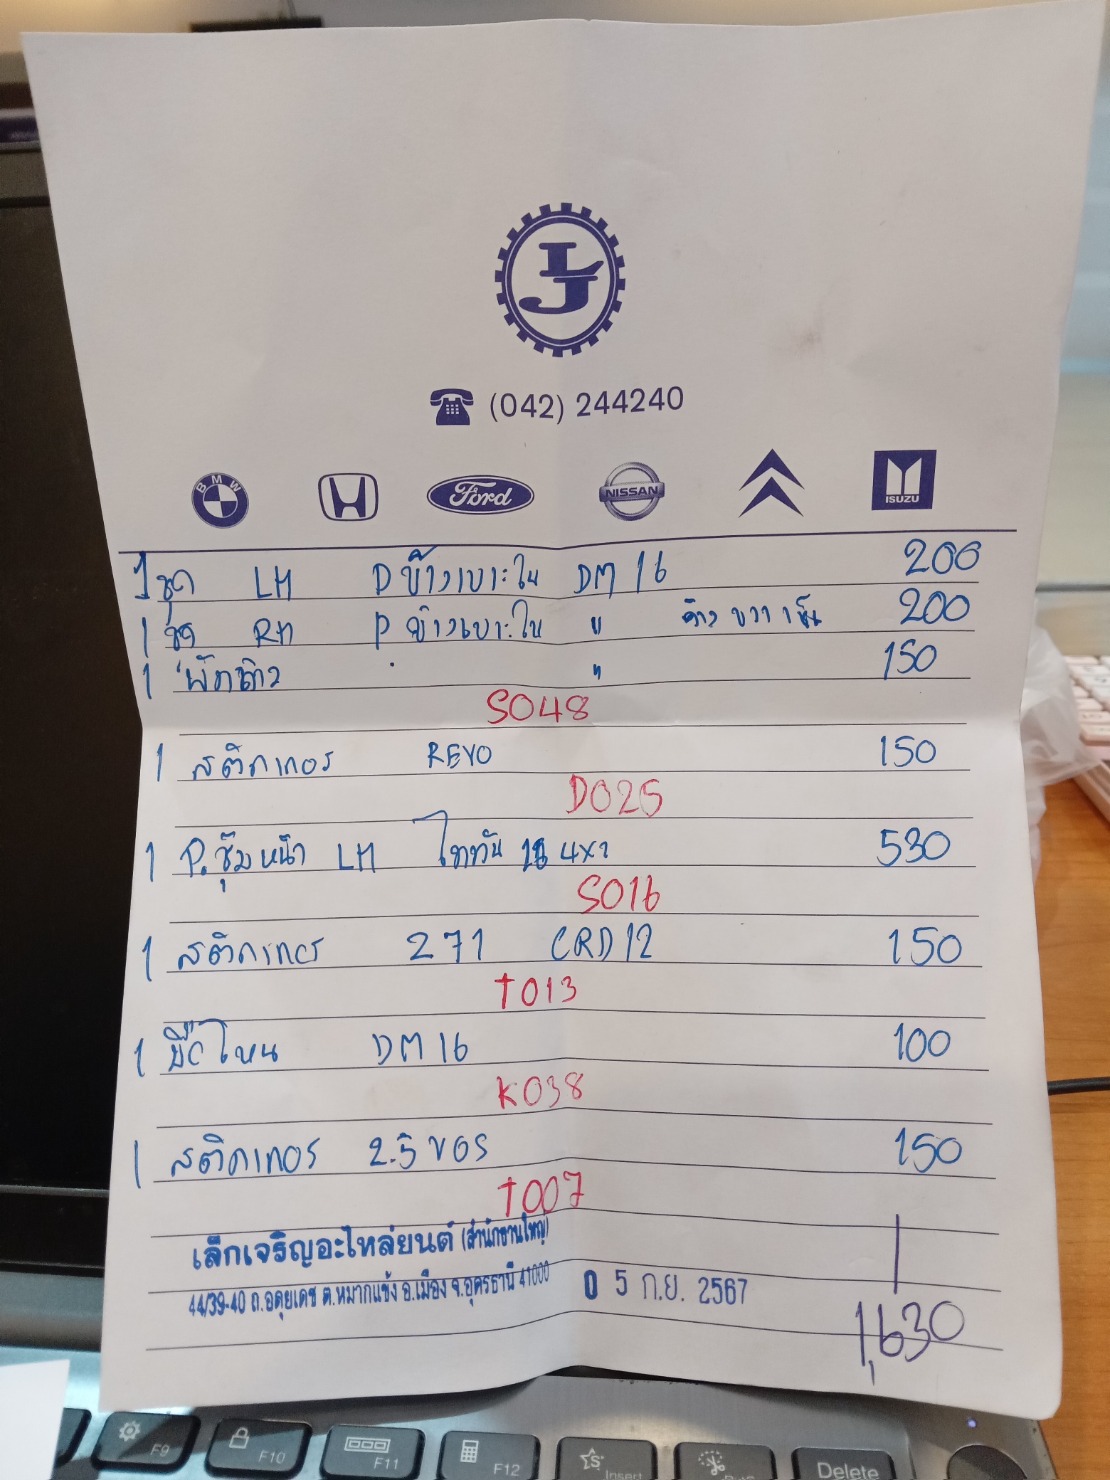 LJ
(042) 244240
BMW
Ford
NISSAN
ISUZU
1 ชุด LH D ข้างเบาะใน DM 16 200
1 ชุด RH P ข้างเบาะใน " ค้าง ขวา 1 ชิ้น 200
1 " 150
S048
1 สติกเกอร์ REVO 150
D025
1 P.ซุ้มหน้า LH ไททัน 4x2 530
S016
1 สติกเกอร์ 271 CRD12 150
T013
1 DM 16 100
K038
1 สติกเกอร์ 2.5 VGS 150
T007
เล็กเจริญอะไหล่ยนต์ (สำนักงานใหญ่)
44/39-40 ถ.อดุยเดช ต.หมากแข้ง อ.เมือง จ.อุดรธานี 41000
0 5 ก.ย. 2567
1,630
F9
F10
F11
F12
Insert
Delete